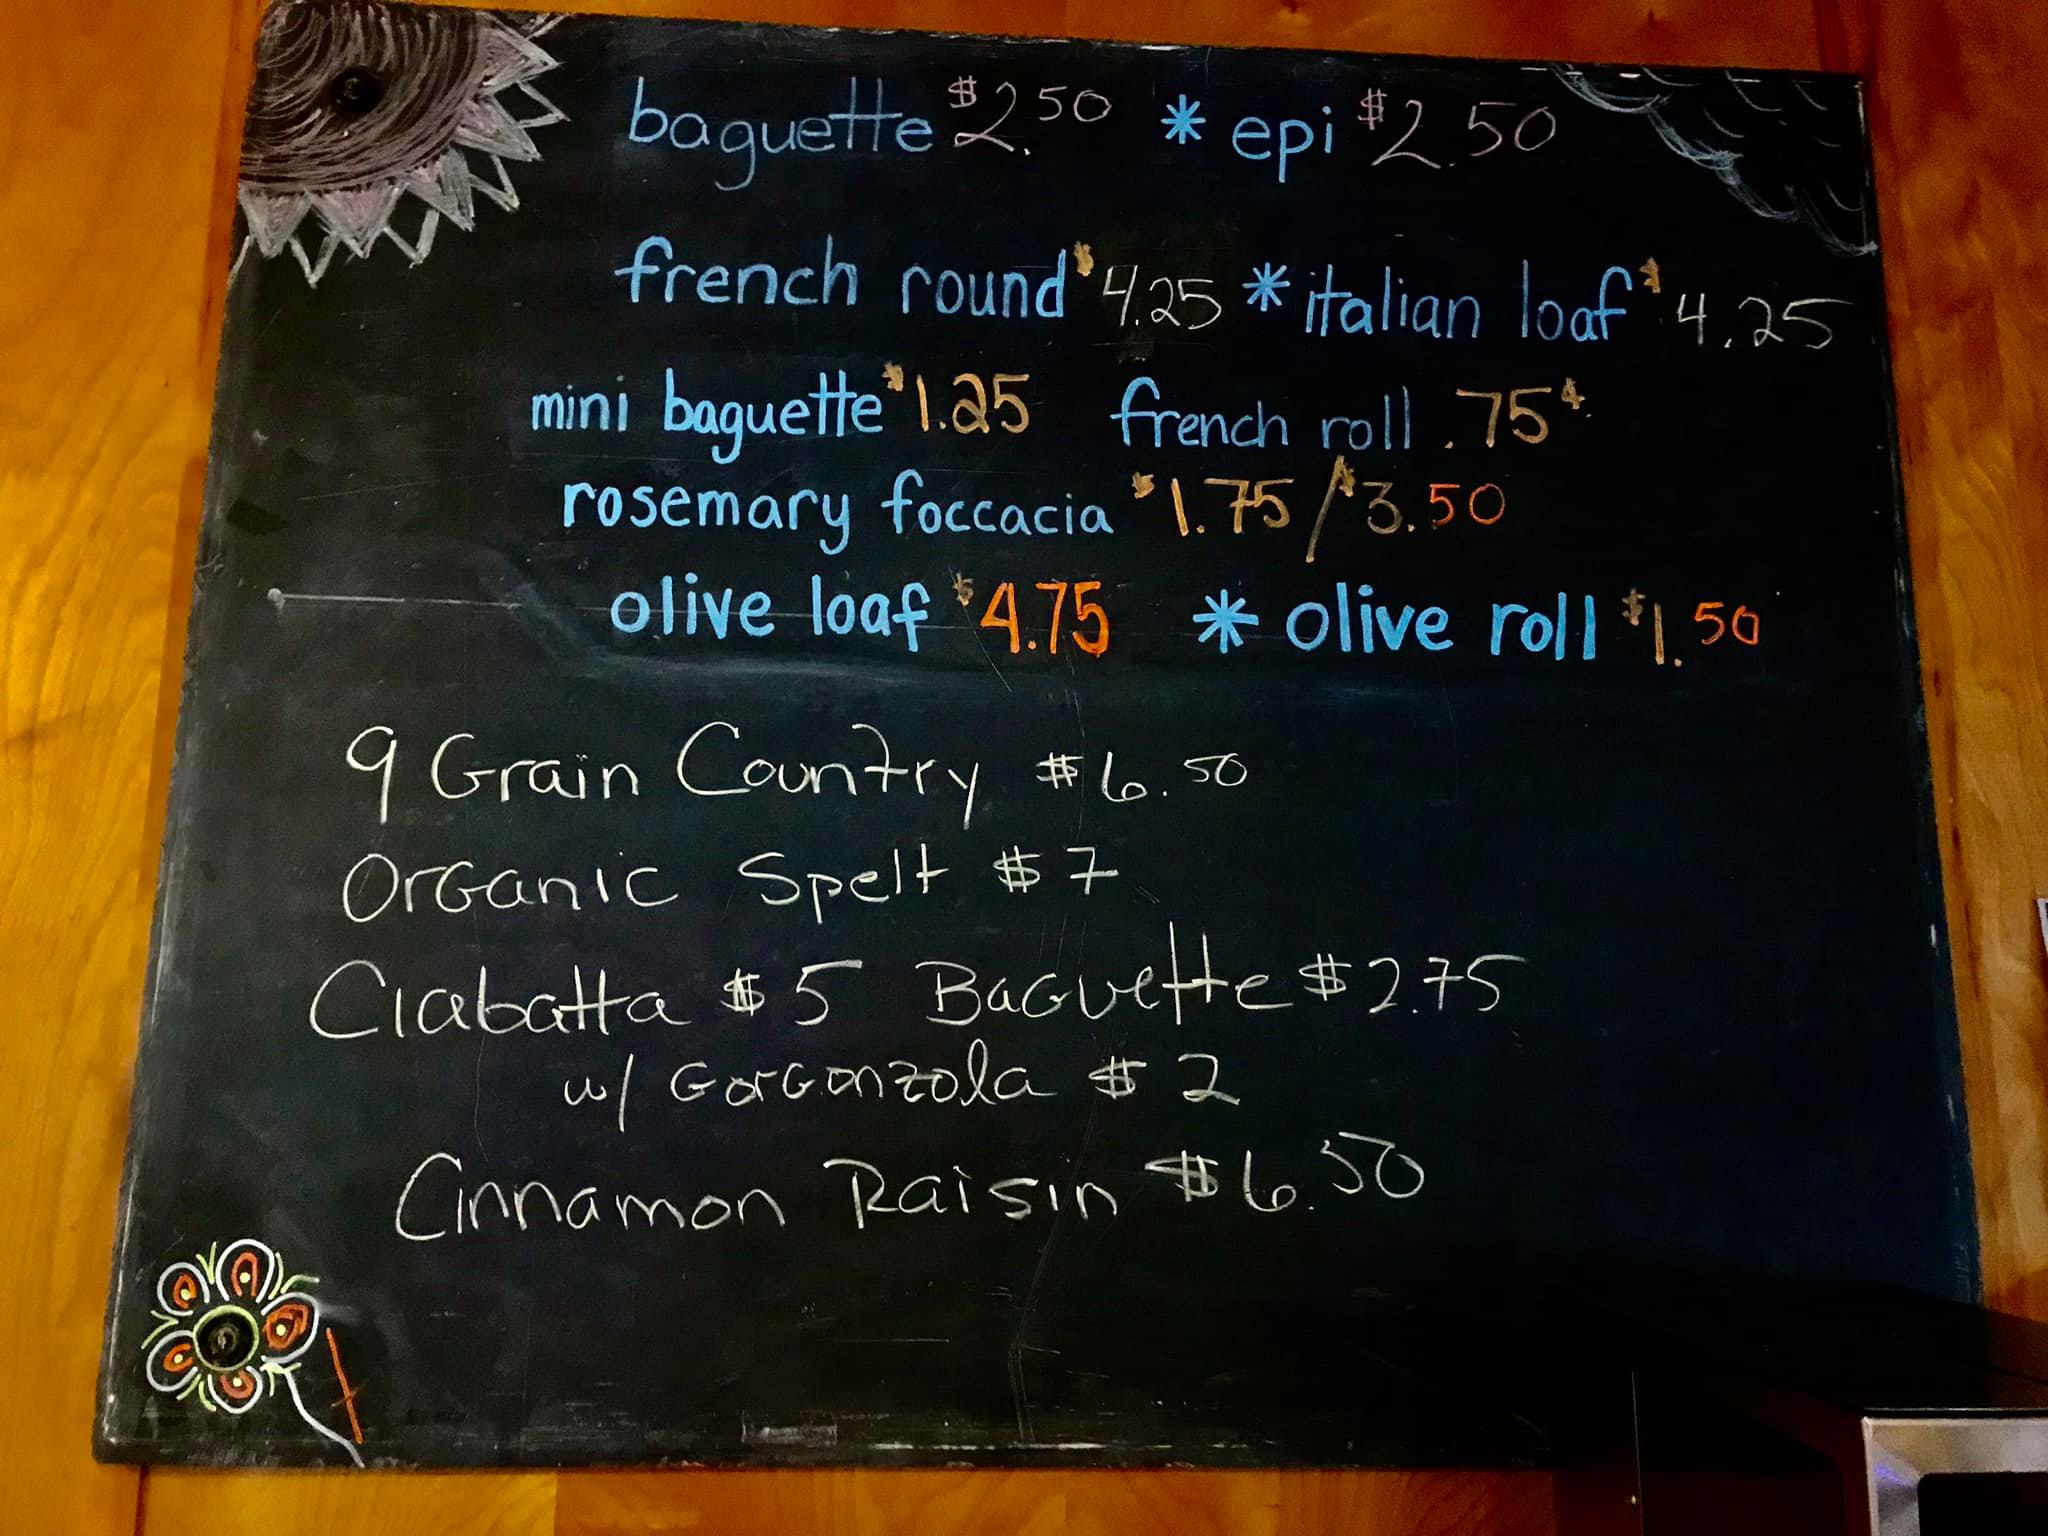 baguette $2.50 * epi $2.50
french round $4.25 * italian loaf $4.25
mini baguette $1.25 french roll .75¢
rosemary foccacia $1.75/$3.50
olive loaf $4.75 * olive roll $1.50
9 Grain Country $6.50
Organic Spelt $7
Ciabatta $5 Baguette $2.75
w/ Gorgonzola $2
Cinnamon Raisin $6.50